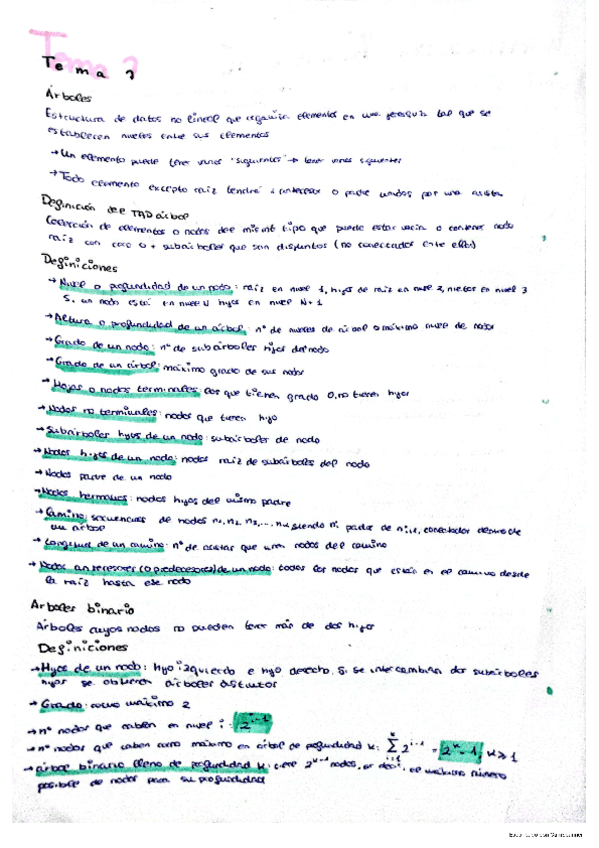 Tema
Árboles
Estructura de datos no lineal que organiza elementos en una jerarquía tal que se
establecen niveles entre sus elementos
→ Un elemento puede tener varios "siguientes" → tener varios siguientes
→ Todo elemento excepto raíz tendrá 1 antecesor o padre unidos por una arista
Definición del TAD árbol
Colección de elementos o nodos del mismo tipo que puede estar vacía o contener nodo
raíz con cero o + subárboles que son disjuntos (no conectados entre ellos)
Definiciones
→ Nivel o profundidad de un nodo: raíz en nivel 1, hijos de raíz en nivel 2, nietos en nivel 3
Si un nodo está en nivel N hijos en nivel N+1
→ Altura o profundidad de un árbol: nº de niveles de árbol o máximo nivel de nodos
→ Grado de un nodo: nº de subárboles hijos del nodo
→ Grado de un árbol: máximo grado de sus nodos
→ Hojas o nodos terminales: los que tienen grado 0, no tienen hijos
→ Nodos no terminales: nodos que tienen hijo
→ Subárboles hijos de un nodo: subárboles de nodo
→ Nodos hijos de un nodo: nodos raíz de subárboles del nodo
→ Nodos padre de un nodo
→ Nodos hermanos: nodos hijos del mismo padre
→ Camino: secuencias de nodos n1, n2, n3, ... siendo ni padre de ni+1, conectados dentro de
un árbol
→ Longitud de un camino: nº de aristas que unen nodos del camino
→ Nodos antecesores (o predecesores) de un nodo: todos los nodos que están en el camino desde
la raíz hasta ese nodo
Árboles binario
Árboles cuyos nodos no pueden tener más de dos hijos
Definiciones
→ Hijos de un nodo: hijo izquierdo e hijo derecho. Si se intercambian dos subárboles
hijos se obtienen árboles distintos
→ Grado: como máximo 2
→ nº nodos que caben en nivel i = 2^(i-1)
→ nº nodos que caben como máximo en árbol de profundidad k: ∑ 2^(i-1) = 2^k - 1, k ≥ 1
→ árbol binario lleno de profundidad k: tiene 2^k-1 nodos, es decir, el máximo número
posible de nodos para su profundidad